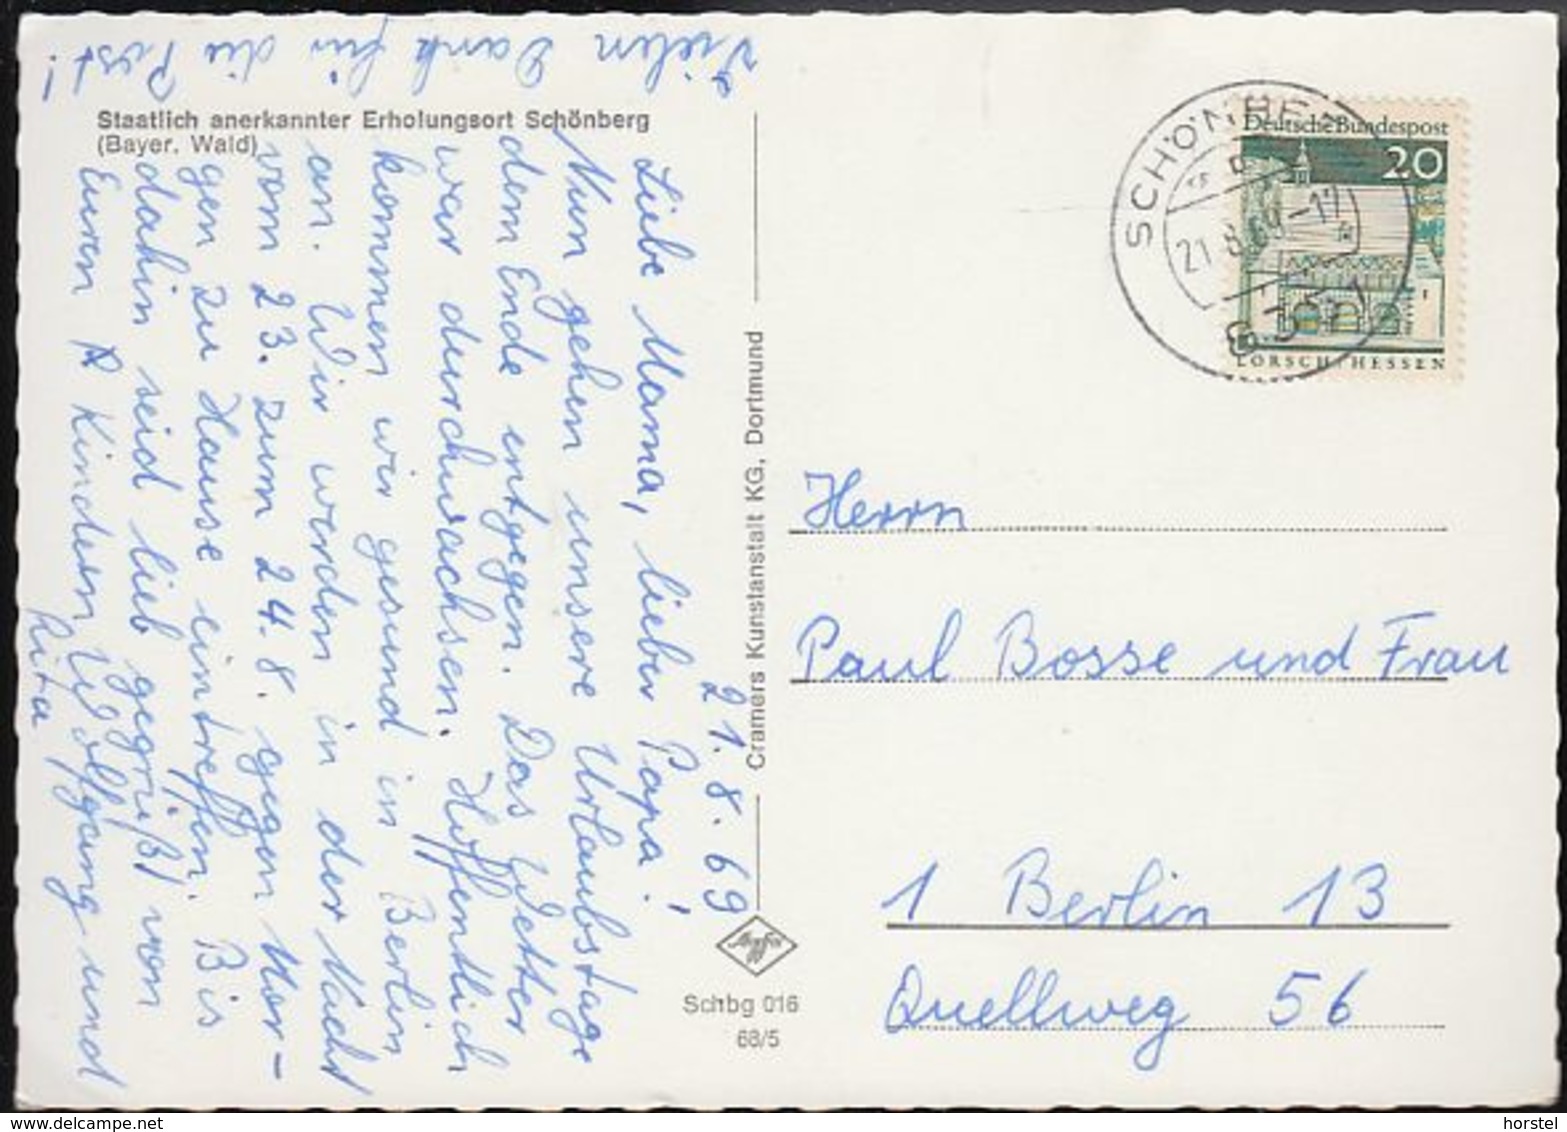 Vielen Dank für die Post!
Staatlich anerkannter Erholungsort Schönberg
(Bayer. Wald)
21.8.69
Liebe Mama, lieber Papa!
Nun gehen unsere Urlaubstage
dem Ende entgegen. Das Wetter
war durchwachsen. Hoffentlich
kommen wir gesund in Berlin
an. Wir werden in der Nacht
vom 23. zum 24.8. gegen Mor-
gen zu Hause eintreffen. Bis
dahin seid lieb gegrüßt von
Euren Kindern Wolfgang und
Rita
Cramers Kunstanstalt KG, Dortmund
Agfa
Schbg 016
68/5
SCHÖNBE
21.8.69-17
8351
Deutsche Bundespost
20
LORSCH/HESSEN
Herrn
Paul Bosse und Frau
1 Berlin 13
Quellweg 56
horstel
www.delcampe.net